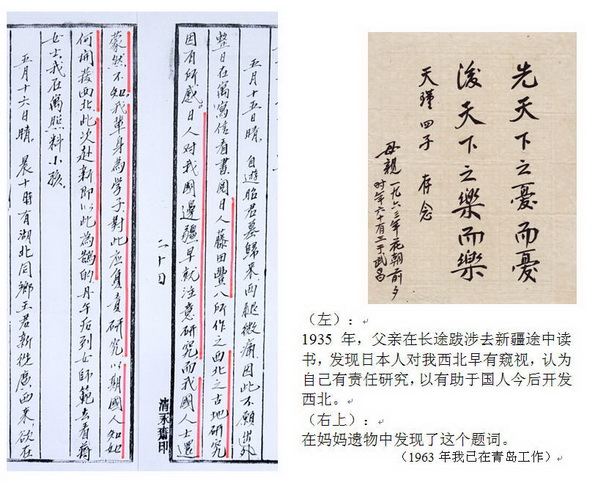 五月十五日晴 自遊昭君墓歸來,兩腿微痛,因此不願出外
整日在寓寫信看書,閱日人藤田豐八所作之西北之古地研究
因有所感。日人对我國邊疆早就注意研究,而我國人士還
二十日
齋印
蒙然不知,我輩身為學子,對此應負責研究,以期國人知如
何開發西北,此次赴新即以此為鵠的。丹午后到女師範去看
女士,我在寓照料小孩。
五月十六日晴 晨十時有湖北同鄉王君新從廣西來欲在
先天下之憂而憂
後天下之樂而樂
天瑾四子 存念
母親一九六三年花朝前夕
时年六十有三于武昌
(左):
1935 年,父亲在长途跋涉去新疆途中读
书,发现日本人对我西北早有窥视,认为
自己有责任研究,以有助于国人今后开发
西北。
(右上):
在妈妈遗物中发现了这个题词。
(1963 年我已在青岛工作)